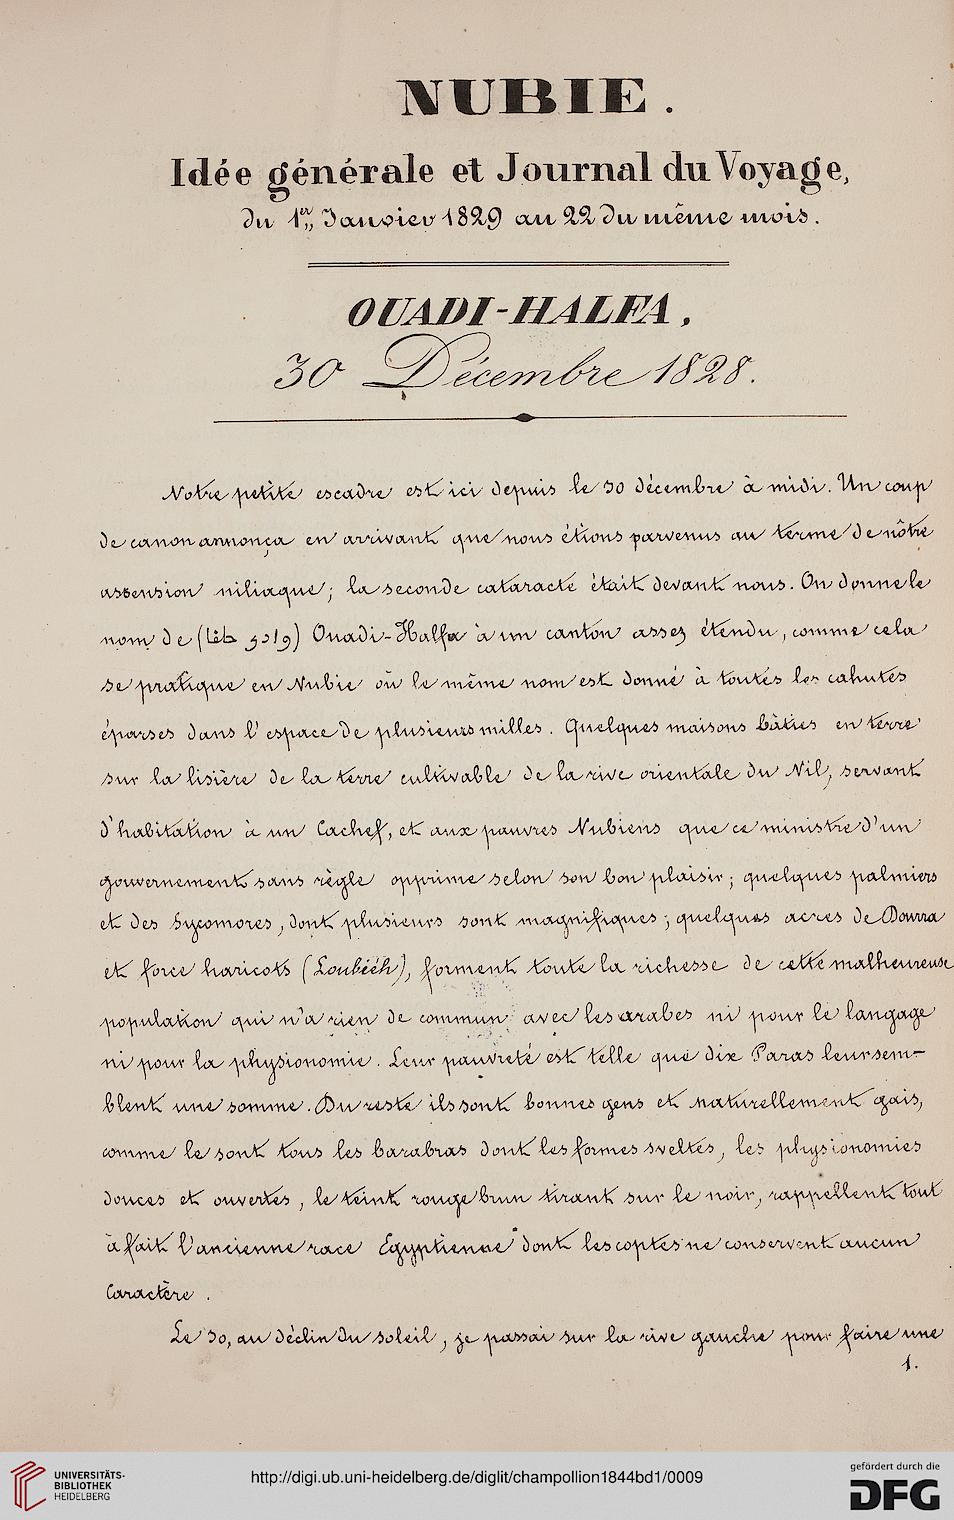 NUBIE.
Idée générale et Journal du Voyage,
du 1er,, Janvier 1829 au 22 du même mois.
OUADI-HALFA,
30 Décembre 1828.
Notre petite escadre est ici depuis le 30 décembre à midi. Un coup
de canon annonça en arrivant que nous étions parvenus au terme de nôtre
assension niliaque; la seconde cataracte était devant nous. On donne le
nom de (وادى حلفا) Ouadi-Halfa à un canton assez étendu, comme cela
se pratique en Nubie où le même nom est donné à toutes les cahutes
éparses dans l'espace de plusieurs milles. Quelques maisons bâties en terre
sur la lisière de la terre cultivable de la rive orientale du Nil, servant
d'habitation à un Cachef, et aux pauvres Nubiens que ce ministre d'un
gouvernement sans règle opprime selon son bon plaisir; quelques palmiers
et des Sycomores, dont plusieurs sont magnifiques; quelques acres de Dourra
et force haricots (Loubiéh), forment toute la richesse de cette malheureuse
population qui n'a rien de commun avec les arabes ni pour le langage
ni pour la physionomie. Leur pauvreté est telle que dix Paras leur sem-
blent une somme. Du reste ils sont bonnes gens et naturellement gais,
comme le sont tous les barabras dont les formes sveltes, les physionomies
douces et ouvertes, le teint rouge brun tirant sur le noir, rappellent tout
à fait l'ancienne race Egyptienne dont les coptes ne conservent aucun
Caractère.
Le 30, au déclin du soleil, je passai sur la rive gauche pour faire une
1.
UNIVERSITÄTS-
BIBLIOTHEK
HEIDELBERG
http://digi.ub.uni-heidelberg.de/diglit/champollion1844bd1/0009
gefördert durch die
DFG